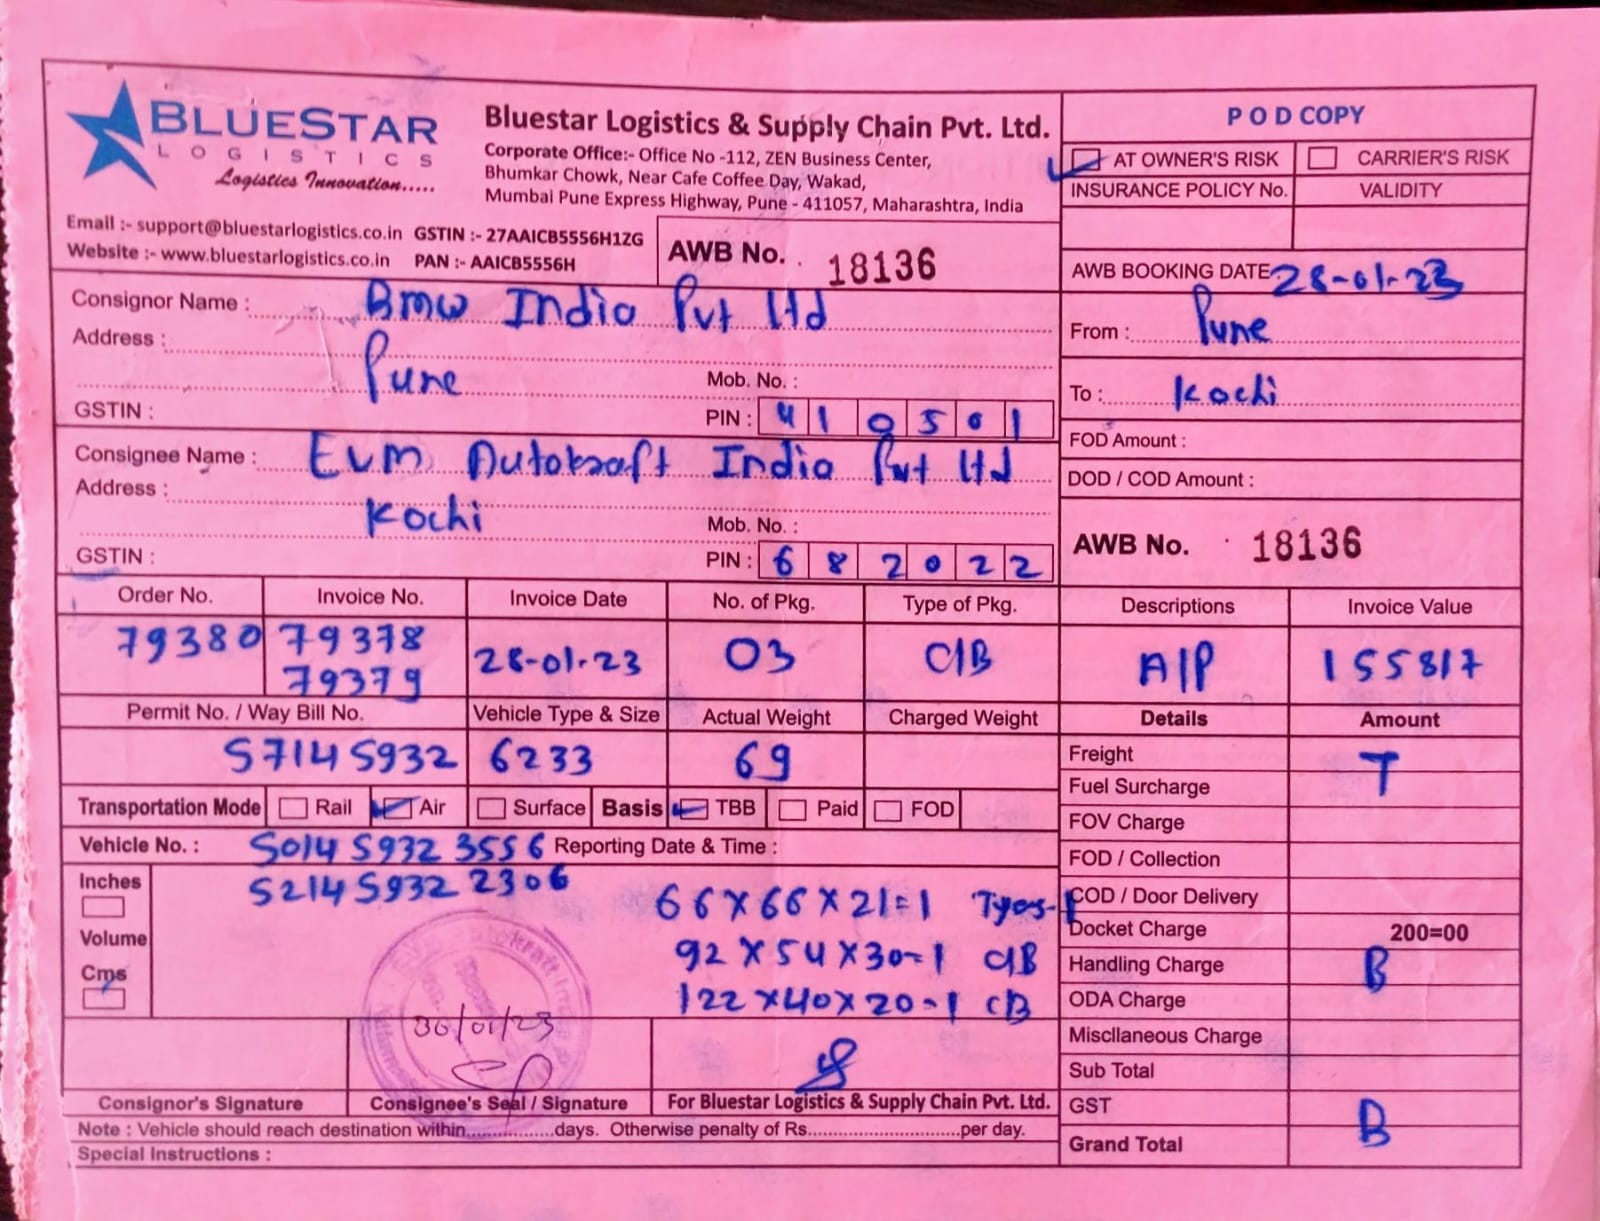 BLUESTAR
LOGISTICS
Logistics Innovation.....
Bluestar Logistics & Supply Chain Pvt. Ltd.
Corporate Office:- Office No -112, ZEN Business Center,
Bhumkar Chowk, Near Cafe Coffee Day, Wakad,
Mumbai Pune Express Highway, Pune - 411057, Maharashtra, India
Email :- support@bluestarlogistics.co.in GSTIN :- 27AAICB5556H1ZG
Website :- www.bluestarlogistics.co.in PAN :- AAICB5556H
AWB No. 18136
POD COPY
AT OWNER'S RISK CARRIER'S RISK
INSURANCE POLICY No. VALIDITY
AWB BOOKING DATE 28-01-23
From : Pune
To : Kochi
FOD Amount :
DOD / COD Amount :
AWB No. 18136
Consignor Name : BMW India Pvt Ltd
Address : Pune
Mob. No. :
GSTIN : PIN : 410501
Consignee Name : EVM Autokraft India Pvt Ltd
Address : Kochi
Mob. No. :
GSTIN : PIN : 682022
Order No. Invoice No. Invoice Date No. of Pkg. Type of Pkg. Descriptions Invoice Value
79380 79378 28-01-23 03 C/B A/P 155817
79379
Permit No. / Way Bill No. Vehicle Type & Size Actual Weight Charged Weight Details Amount
57145932 6233 69
Freight T
Fuel Surcharge
Transportation Mode Rail Air Surface Basis TBB Paid FOD
FOV Charge
Vehicle No. : 50145932 3556 Reporting Date & Time :
FOD / Collection
52145932 2306
Inches
Volume
Cms
66X66X21=1 Tyres-1
92X54X30-1 C/B
122X40X20-1 CB
COD / Door Delivery
Docket Charge 200=00
Handling Charge B
ODA Charge
Miscllaneous Charge
Sub Total
GST B
Grand Total
30/01/23
Consignor's Signature Consignee's Seal / Signature For Bluestar Logistics & Supply Chain Pvt. Ltd.
Note : Vehicle should reach destination within................days. Otherwise penalty of Rs............................per day.
Special Instructions :